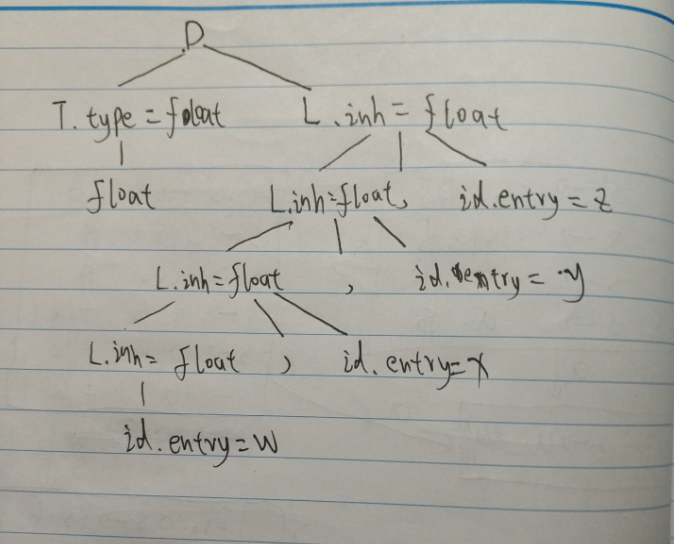 D
T.type = float L.inh = float
float L.inh=float, id.entry = z
L.inh=float , id.entry = y
L.inh= float , id.entry=x
id.entry=w